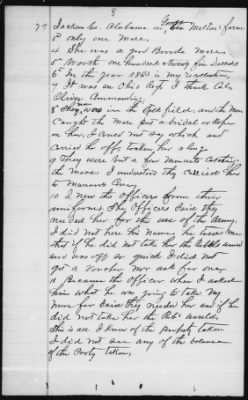 8
79 Jackson Co. Alabama in, farm
3d only one Mare
4 She was a good Brode Mare
5 Worth one hundred & twenty five Dollars
6 In the year 1863 is my recollection
7 It was an Ohio Regt I think Col
Commanding
8 They was in the field and the Men
Caught the Mare put a bridal or Rope
on her, I cannot say which and
carried her off, taken her along
9 They were but a few minutes Catching
the Mare I understood they carried her
to
10 I Knew the officers from their
uniforms. The officers said they
needed her for the use of the Army.
I did not hear his Name, he told me
that if he did not take her the Rebbels would
and was off so quick I did not
get a Voucher nor ask for one
11 Because the officer when I asked
him what he was going to take my
mare for said they needed her and if he
did not take her the Rebs would.
She is all I know of the property taken
I did not see any of the balance
of the Property taken,